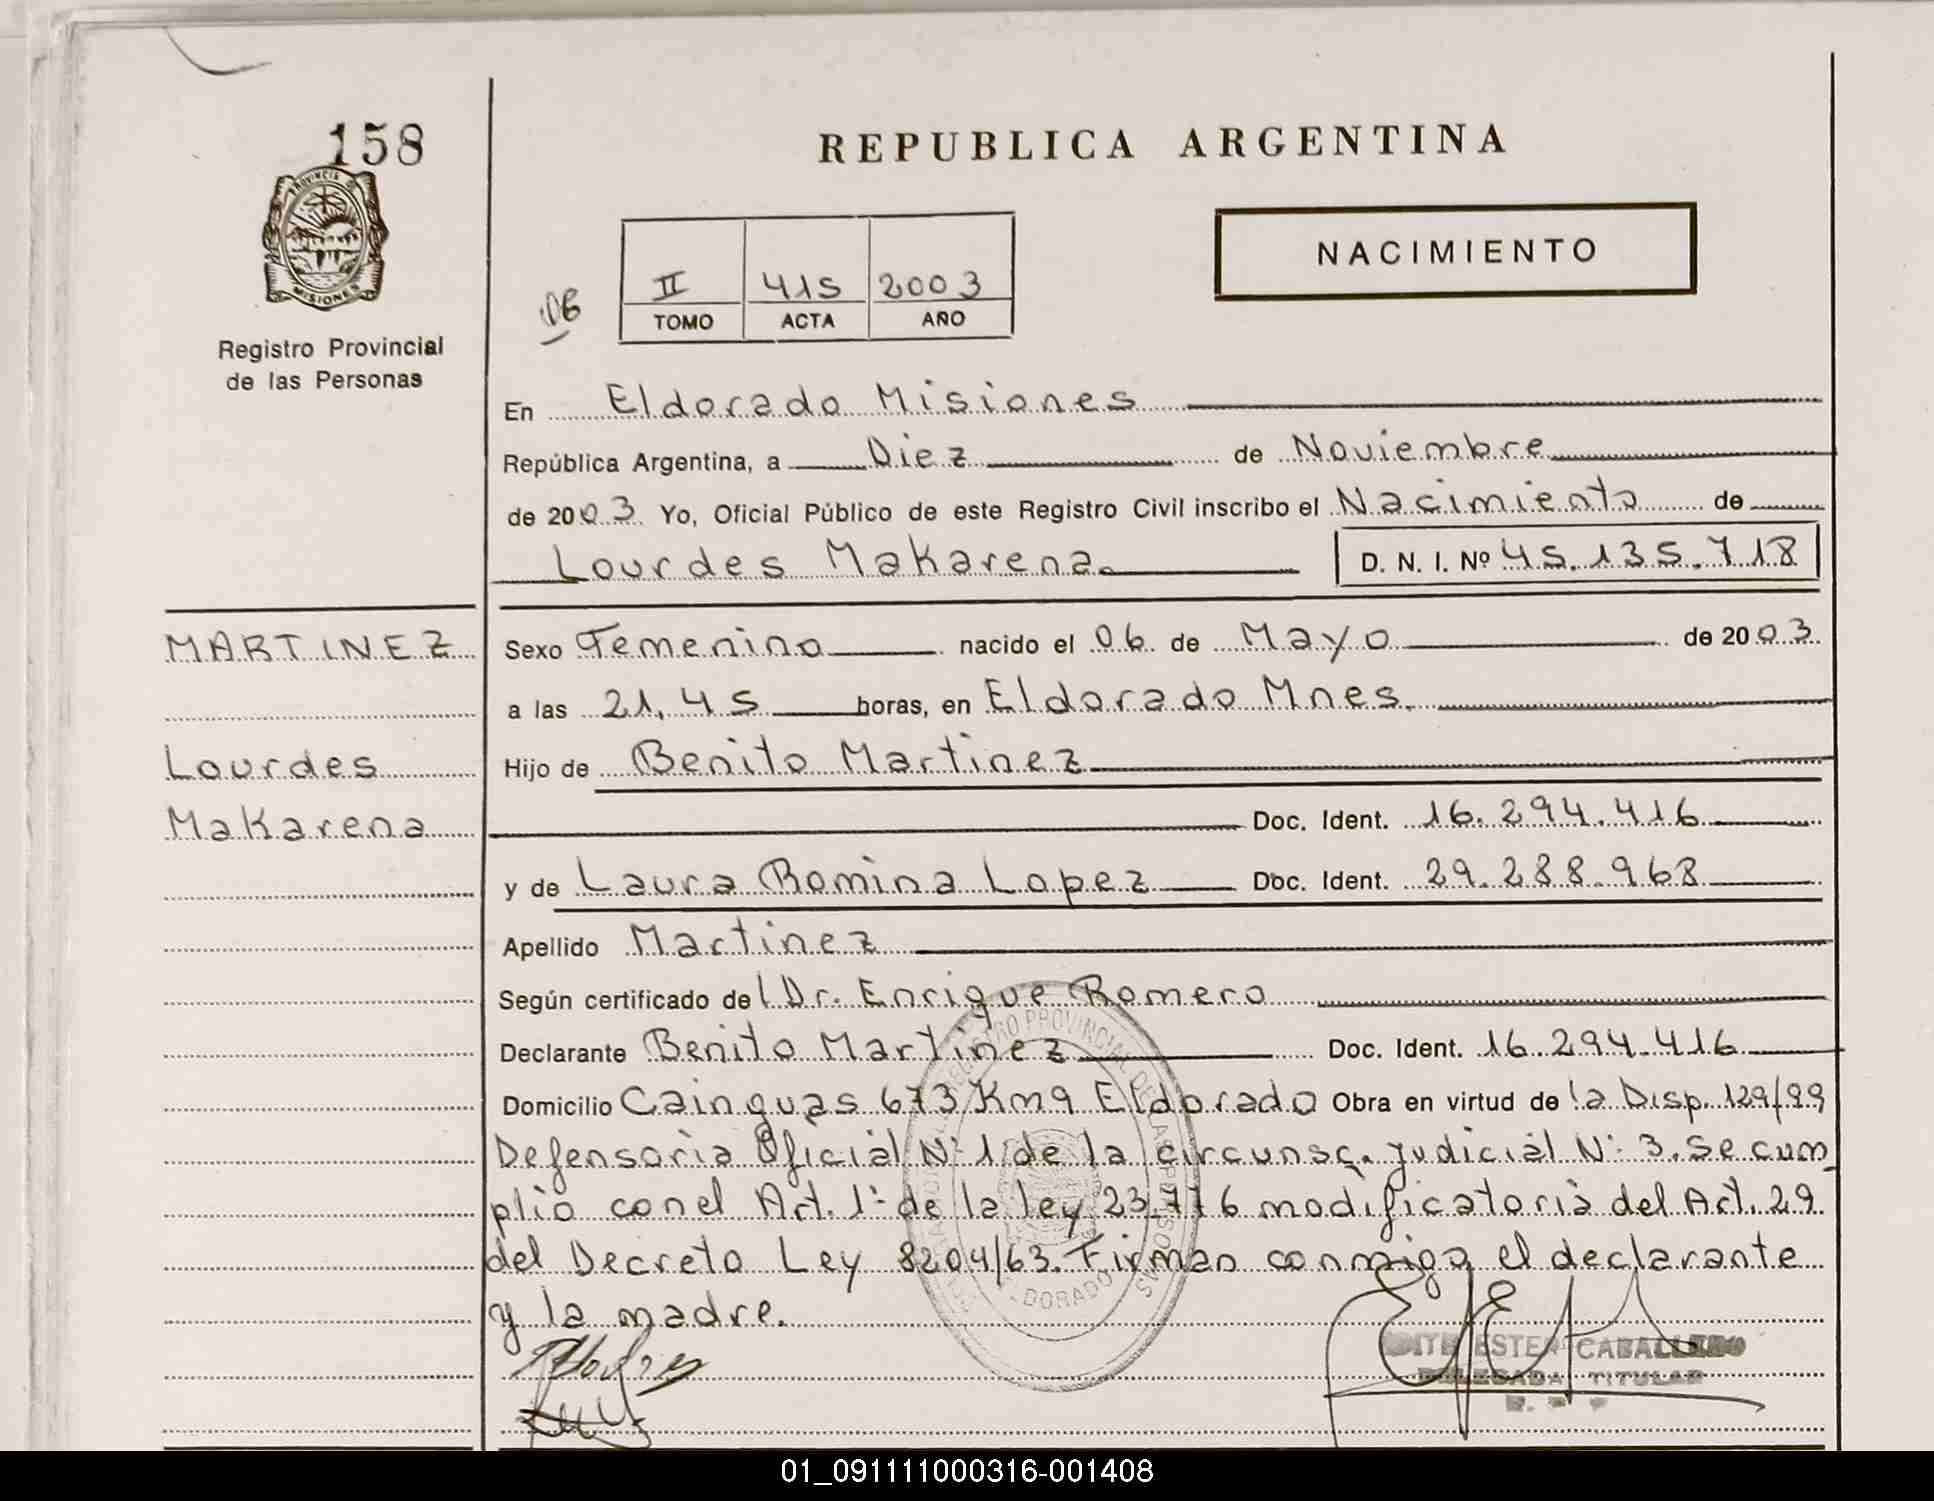 158
REPUBLICA ARGENTINA
PROVINCIA DE
MISIONES
NACIMIENTO
II 415 2003
TOMO ACTA AÑO
06
Registro Provincial
de las Personas
En Eldorado Misiones
República Argentina, a Diez de Noviembre
de 2003 Yo, Oficial Público de este Registro Civil inscribo el Nacimiento de
Lourdes Makarena. D. N. I. Nº 45.135.718
MARTINEZ
Lourdes
Makarena
Sexo Femenino nacido el 06 de Mayo de 2003
a las 21,45 horas, en Eldorado Mnes.
Hijo de Benito Martinez
Doc. Ident. 16.294.416
y de Laura Romina Lopez Doc. Ident. 29.288.968
Apellido Martinez
Según certificado de Dr. Enrique Romero
Declarante Benito Martinez Doc. Ident. 16.294.416
Domicilio Cainguas 673 Km9 Eldorado Obra en virtud de la Disp. 129/99
Defensoria Oficial Nº 1 de la circunsc. judicial Nº 3. Se cum
plio con el Art. 1º de la ley 23.776 modificatoria del Art. 29
del Decreto Ley 8204/63. Firman conmigo el declarante
y la madre.
REGISTRO PROVINCIAL DE LAS PERSONAS
ELDORADO
ESTER CABALLERO
DELEGADA TITULAR
01_091111000316-001408